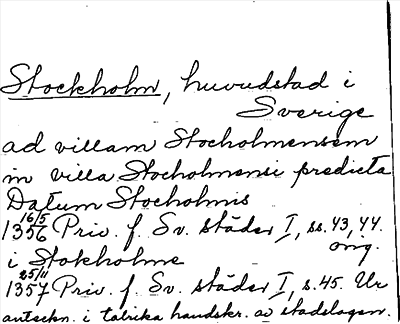 Stockholm, huvudstad i
Sverige
ad villam Stocholmensem
in villa Stocholmensi predicta
Datum Stocholmis
16/5
1356 Priv. f. Sv. städer I, ss. 43, 44.
orig.
i Stokholme
25/11
1357 Priv. f. Sv. städer I, s. 45. Ur
anteckn. i talrika handskr. av stadslagen.